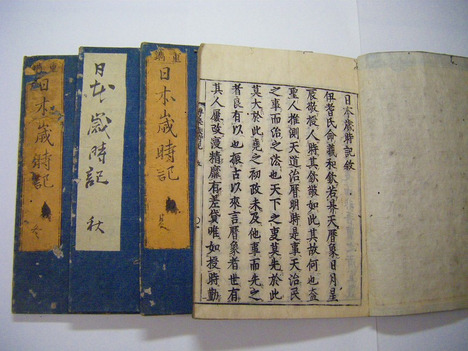 日本歳時記敘
伊耆氏命羲和欽若昊天曆象日月星
辰敬授人時其欽敬如此其故何也蓋
聖人推測天道治曆明時是事天治民
之事而治之法也天下之事莫先於此
莫大於此堯之初政未及他事而先之
者良有以也振古以來言曆象者世有
其人屢改寖精靡有差貸唯如授時勤
日本歳時記
夏
日本歳時記
秋
日本歳時記
冬